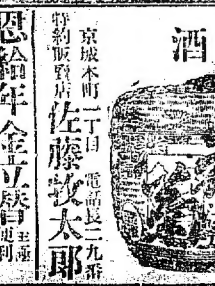 酒
京城本町一丁目 電話長二九番
特約販賣店
佐藤牧太郎
恩給年金立替